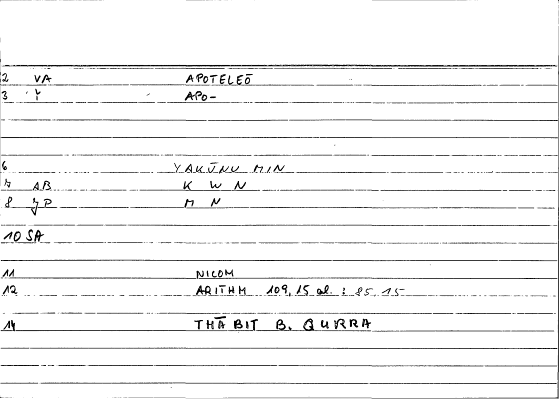 2 VA APOTELEŌ
3 Y APO-
6 YAKŪNU MIN
7 AB K W N
8 JP M N
10 SA
11 NICOM
12 ARITHM 109,15 al. : 85 15
14 THĀBIT B. QURRA